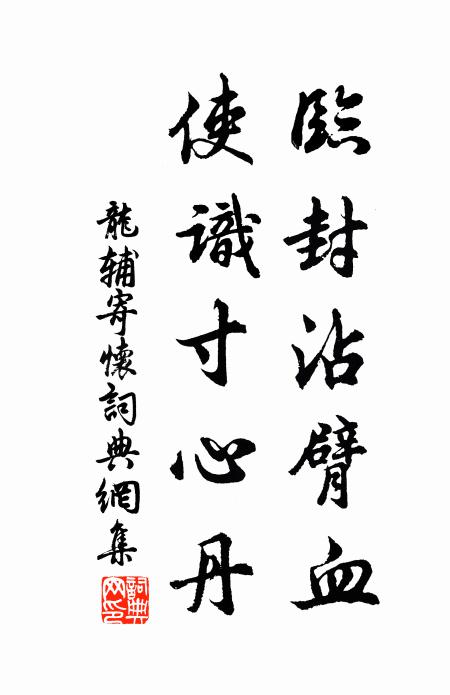 臨封沾臂血
使識寸心丹
龍輔寄懷詞典網集
詞典網印